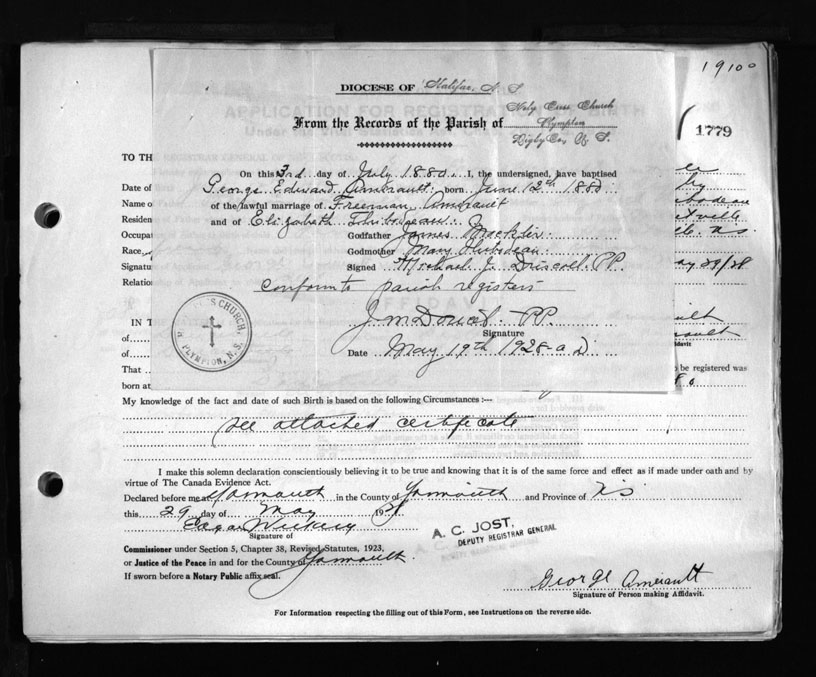 19100
1779
DIOCESE OF Halifax, N. S
From the Records of the Parish of Holy Cross Church
Plympton
Digby Co, N. S.
TO TH
On this 3rd day of July 1880. I, the undersigned, have baptised
Date of George Edward Amirault: born June 12th 1880
Name o of the lawful marriage of Freeman Amirault
Residen and of Elizabeth Thibideau:
Occupa Godfather James
Race, Godmother Mary Thibodeau
Signatu Signed Michael J. Driscoll P.P.
May 29/28
Relatio conform to parish registers
J. M. Doucet. PP.
Signature
IN T
of
of Date May 19th 1928 A D
That to be registered was
born at
CHURCH, PLYMPTON, N.S.
My knowledge of the fact and date of such Birth is based on the following Circumstances :—
See attached certificate
I make this solemn declaration conscientiously believing it to be true and knowing that it is of the same force and effect as if made under oath and by
virtue of The Canada Evidence Act.
Declared before me at Yarmouth in the County of Yarmouth and Province of NS
this 29 day of May 1928
Signature of
A. C. JOST,
DEPUTY REGISTRAR GENERAL
Commissioner under Section 5, Chapter 38, Revised Statutes, 1923,
or Justice of the Peace in and for the County of Yarmouth.
If sworn before a Notary Public affix seal.
George Amirault
Signature of Person making Affidavit.
For Information respecting the filling out of this Form, see Instructions on the reverse side.